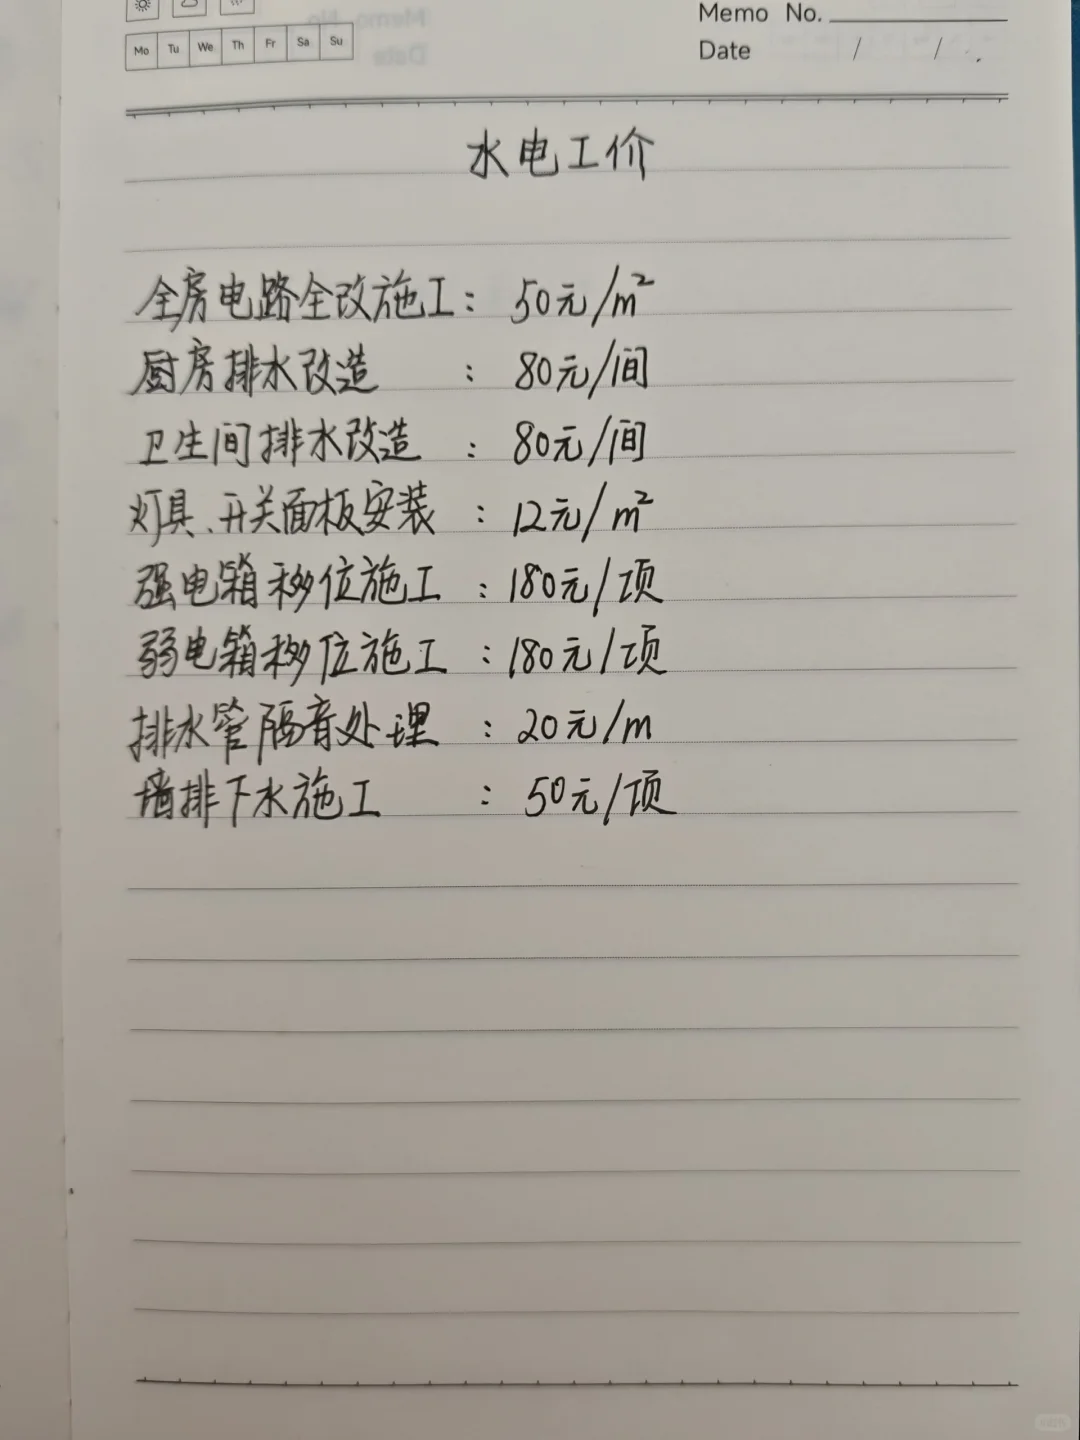 Memo No.
Mo Tu We Th Fr Sa Su
Date / /
水电工价
全房电路全改施工：50元/m²
厨房排水改造：80元/间
卫生间排水改造：80元/间
灯具、开关面板安装：12元/m²
强电箱移位施工：180元/项
弱电箱移位施工：180元/项
排水管隔音处理：20元/m
墙排下水施工：50元/项